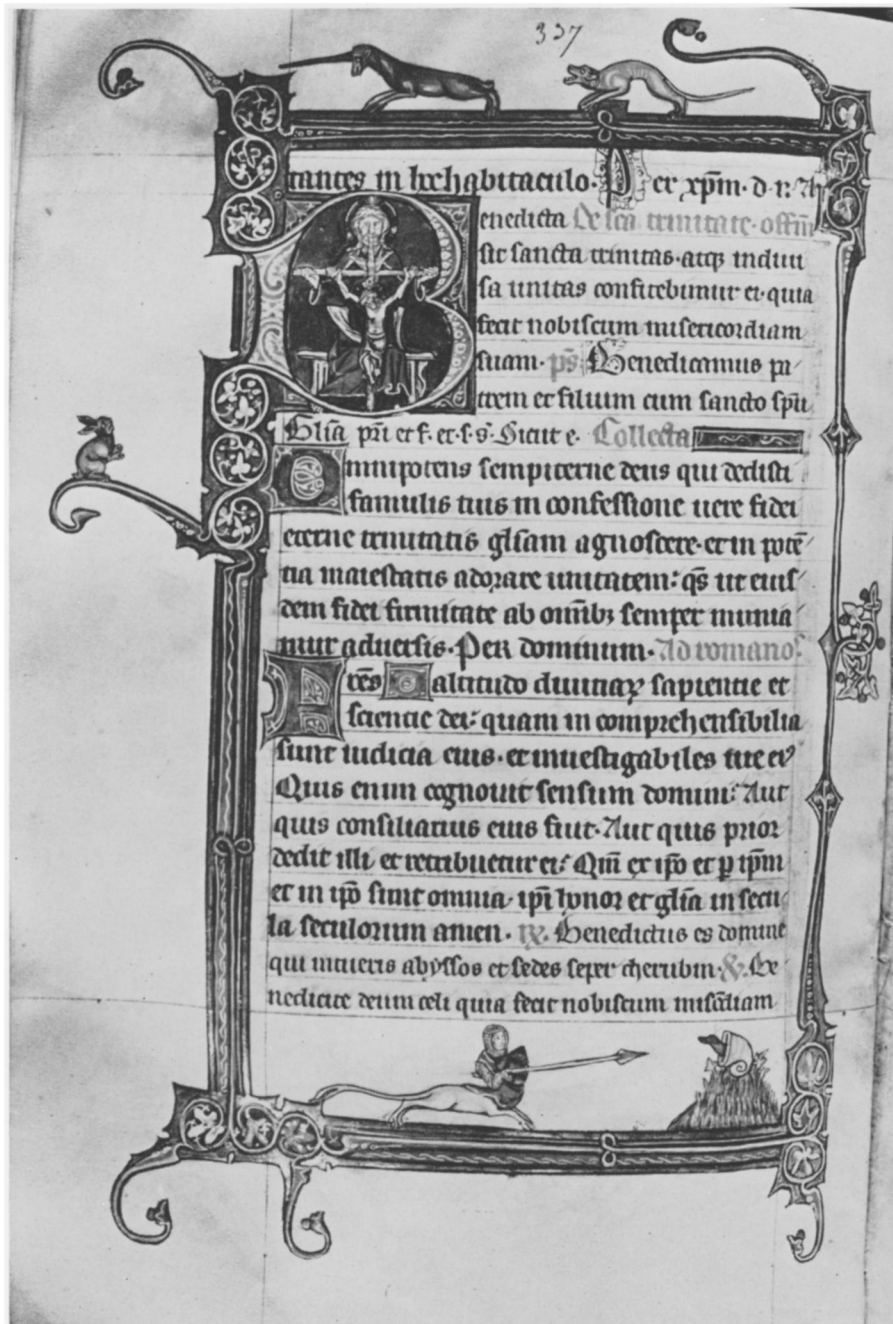 337
tantes in hoc habitaculo. Per xp̄m. d. n. A
enedicta De sc̄a trinitate. offm̄
sit sancta trinitas. atq; indiui
sa unitas confitebimur ei. quia
fecit nobiscum misericordiam
suam. ps̄ Benedicamus pa
trem et filium cum sancto sp̄u
Glīa pr̄i et f. et. s. s̄. Sicut e. Collecta
Omnipotens sempiterne deus qui dedisti
famulis tuis in confessione uere fidei
eterne trinitatis glīam agnoscere. et in potē
tia maiestatis adorare unitatem: qs̄ ut eius
dem fidei firmitate ab omīb; semper munia
mur aduersis. Per dominum. Ad romanos.
Fr̄es O altitudo diuitiaꝝ sapientie et
scientie dei: quam in comprehensibilia
sunt iudicia eius. et inuestigabiles uie eiꝰ
Quis enim cognouit sensum domini: Aut
quis consiliarius eius fuit. Aut quis prior
dedit illi et retribuetur ei: Qm̄ ex ip̄o et p̱ ip̄m
et in ip̄o sunt omnia. ip̄i honor et glīa in secu
la seculorum amen. Benedictus es domine
qui intueris abyssos et sedes seper cherubin. Be
nedicite deum celi quia fecit nobiscum mis̄diam